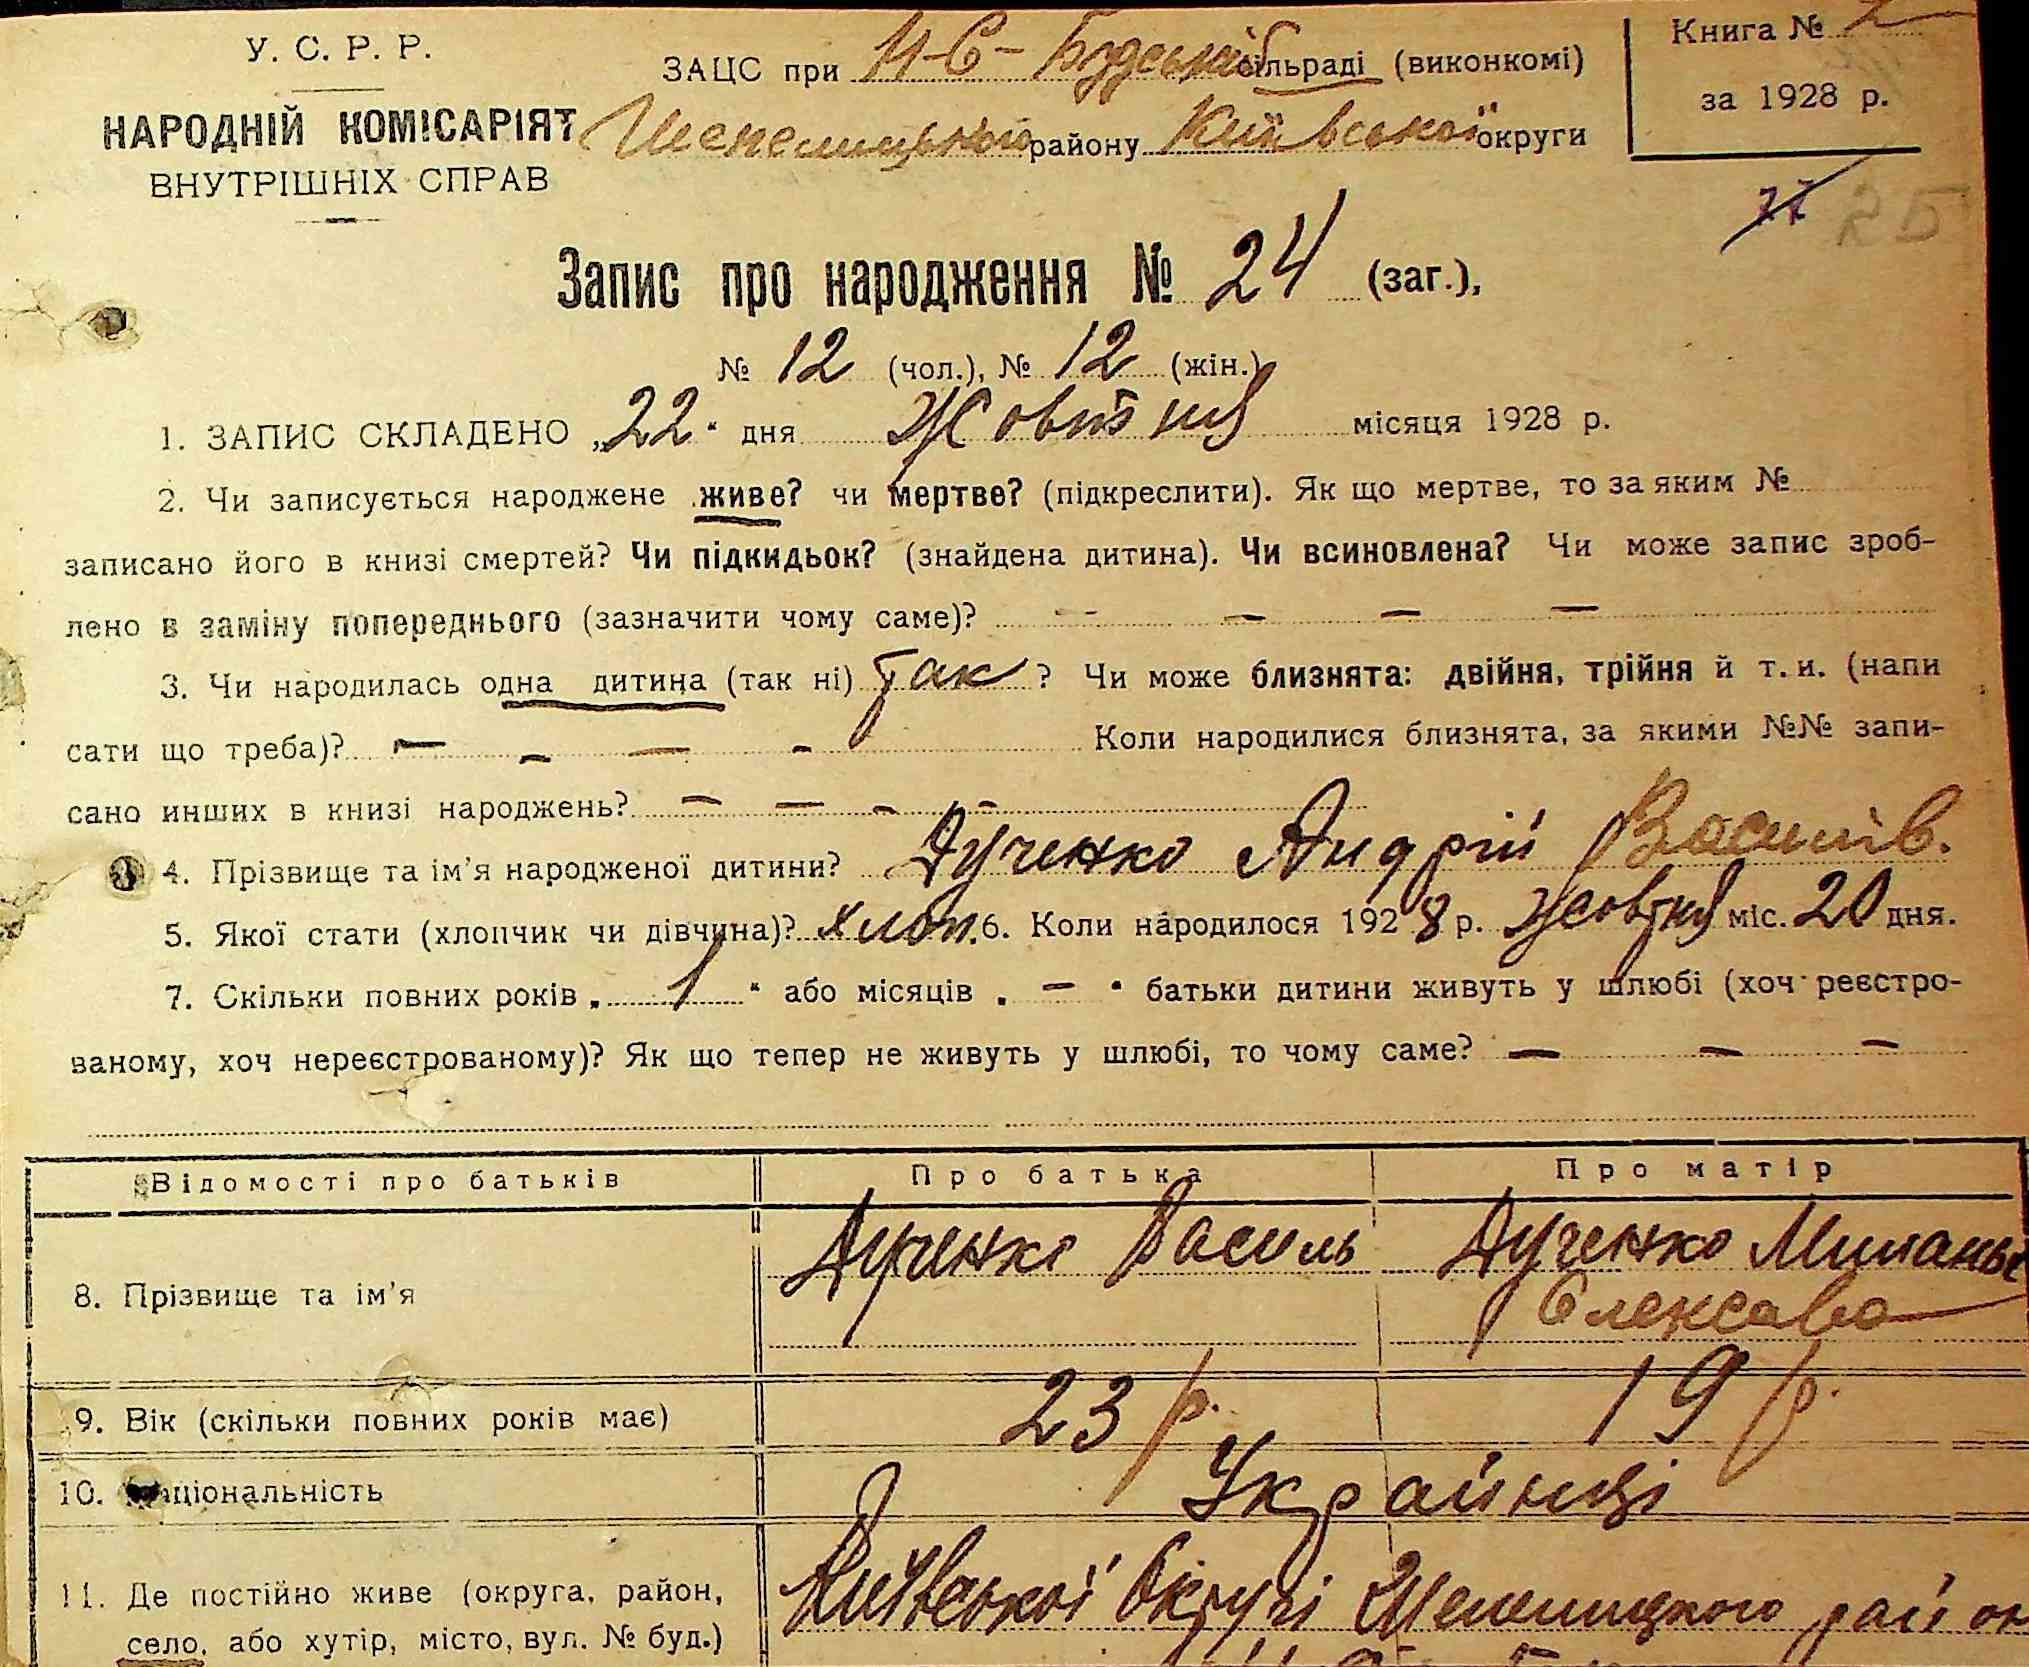 У. С. Р. Р.
НАРОДНІЙ КОМІСАРІЯТ
ВНУТРІШНІХ СПРАВ
ЗАЦС при Н-С-Будській сільраді (виконкомі)
Шепелицького району Київської округи
Книга №
за 1928 р.
77 25
Запис про народження № 24 (заг.),
№ 12 (чол.), № 12 (жін.)
1. ЗАПИС СКЛАДЕНО „22“ дня Жовтня місяця 1928 р.
2. Чи записується народжене живе? чи мертве? (підкреслити). Як що мертве, то за яким №
записано його в книзі смертей? Чи підкидьок? (знайдена дитина). Чи всиновлена? Чи може запис зроб-
лено в заміну попереднього (зазначити чому саме)? — — — —
3. Чи народилась одна дитина (так ні) так ? Чи може близнята: двійня, трійня й т. и. (напи
сати що треба)? — — — — Коли народилися близнята, за якими №№ запи-
сано инших в книзі народжень? — — — —
4. Прізвище та ім'я народженої дитини? Дученко Андрій ВасиLів.
5. Якої стати (хлопчик чи дівчина)? хлоп. 6. Коли народилося 1928 р. Жовтня міс. 20 дня.
7. Скільки повних років „ 1 “ або місяців „ — “ батьки дитини живуть у шлюбі (хоч реєстро-
ваному, хоч нереєстрованому)? Як що тепер не живуть у шлюбі, то чому саме? — — —
Відомості про батьків Про батька Про матір
8. Прізвище та ім'я Дученко Василь Дученко Миланья
Олексаво
9. Вік (скільки повних років має) 23 р. 19 р.
10. Національність Українці
11. Де постійно живе (округа, район, Київської Округі Шепелицкого район
село, або хутір, місто, вул. № буд.)